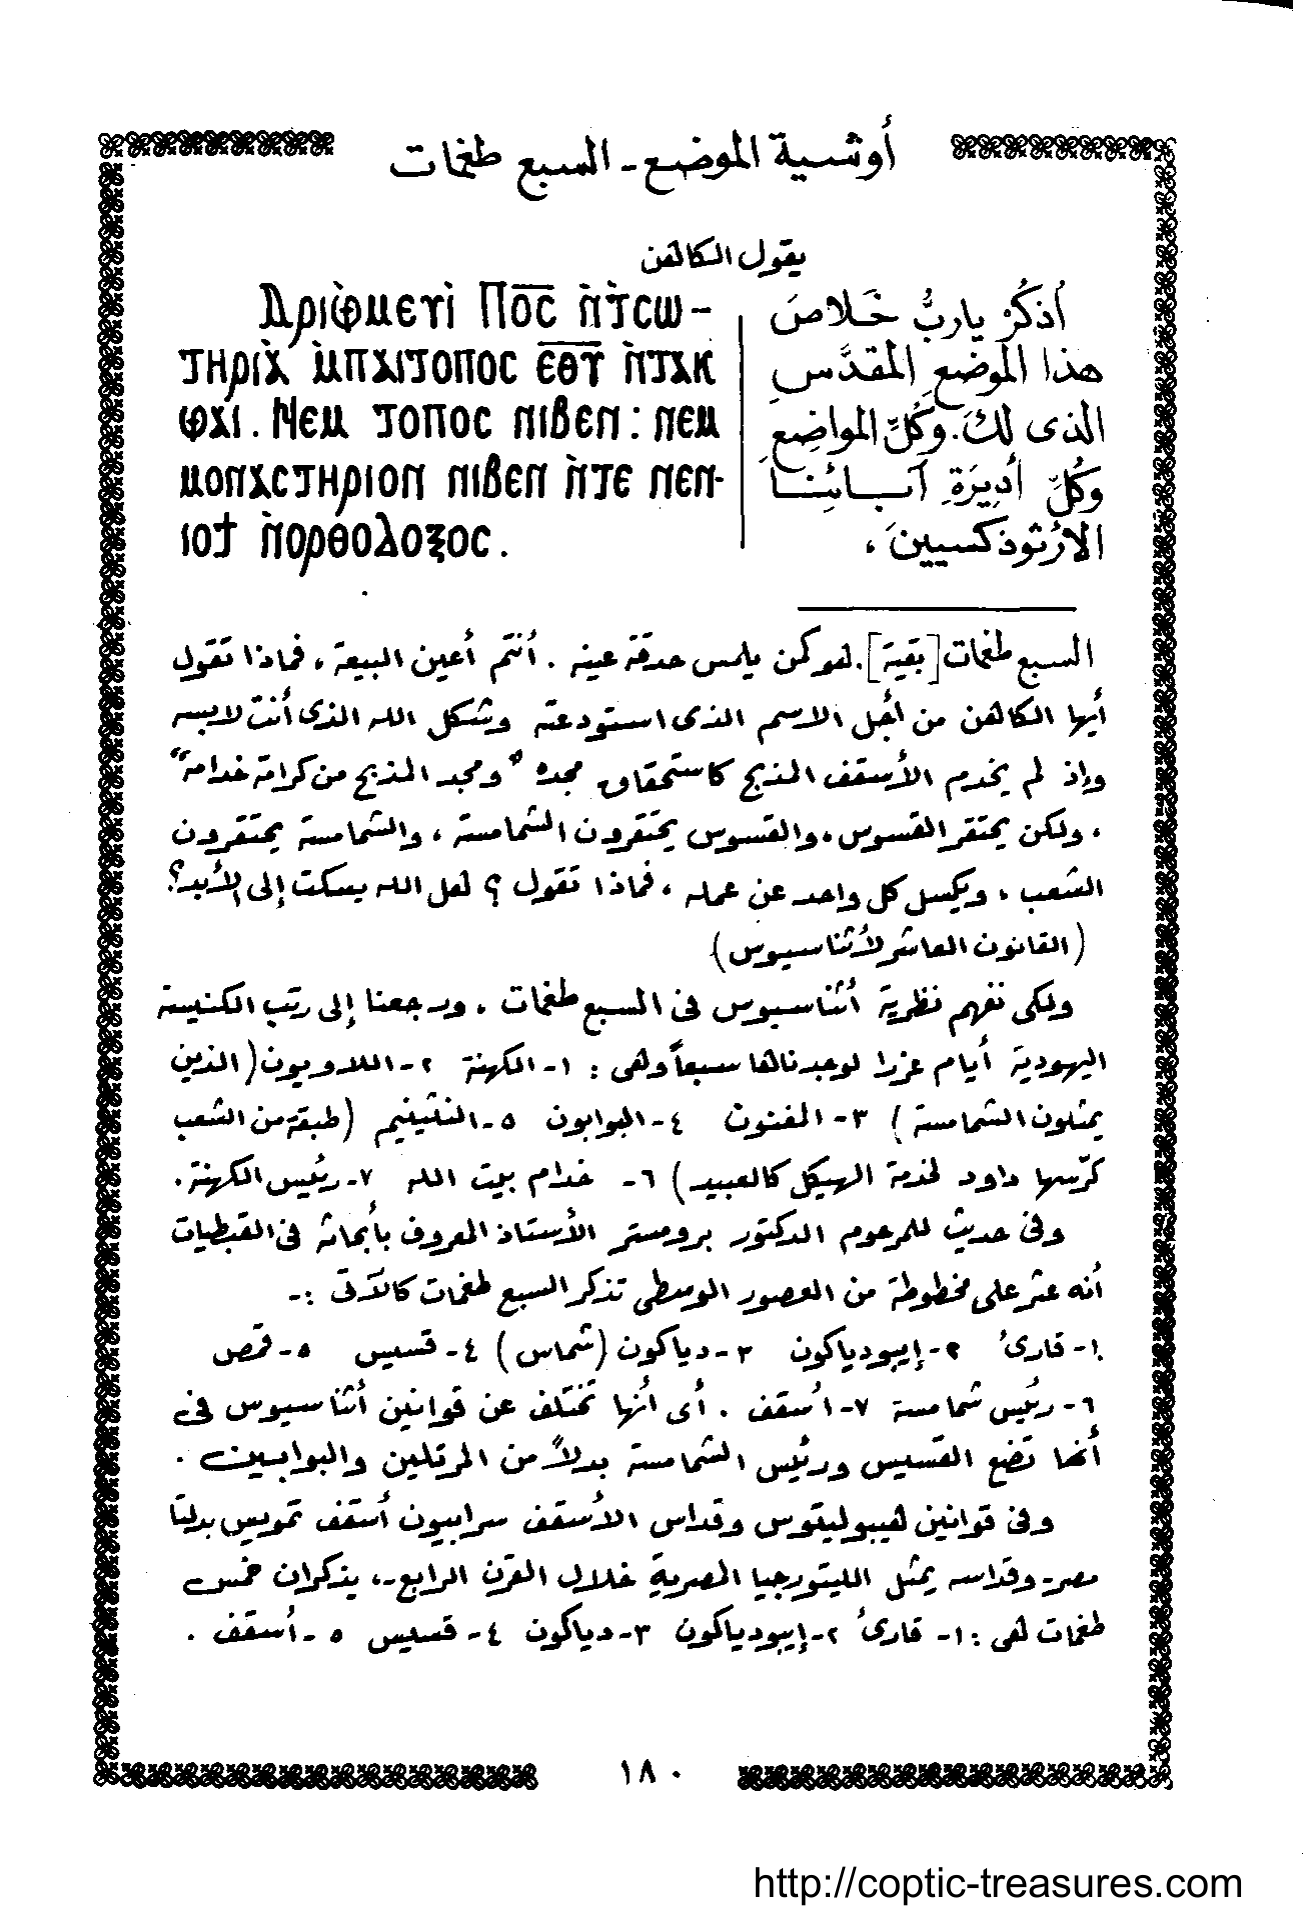 أوشية الموضع - السبع طغمات
يقول الكاهن
Ⲁⲣⲓⲫ̀ⲙⲉⲩⲓ̀ Ⲡⲟ̅ⲥ̅ ⲛ̀ϯⲥⲱ-
ⲧⲏⲣⲓⲁ̀ ⲙ̀ⲡⲁⲓⲧⲟⲡⲟⲥ ⲉ̅ⲑ̅ⲩ̅ ⲛ̀ⲧⲁⲕ
ⲫⲁⲓ. Ⲛⲉⲙ ⲧⲟⲡⲟⲥ ⲛⲓⲃⲉⲛ: ⲛⲉⲙ
ⲙⲟⲛⲁⲥⲧⲏⲣⲓⲟⲛ ⲛⲓⲃⲉⲛ ⲛ̀ⲧⲉ ⲛⲉⲛ-
ⲓⲟϯ ⲛ̀ⲟⲣⲑⲟⲇⲟⲝⲟⲥ.
أذكُرْ ياربُّ خَلاصَ
هذا الموضعِ المقدَّسِ
الذى لكَ. وكُلِّ المواضِعِ
وكُلِّ أديِرَةِ آبـائِنـا
الأرثوذكسيينَ ،
السبع طغمات [بقية]. لهو كمن يلمس حدقة عينه . أنتم أعين البيعة ، فماذا تقول
أيها الكاهن من أجل الاسم الذى استودعته وشكل الله الذى أنت لابسه
وإذ لم يخدم الأسقف المذبح كاستحقاق مجده " ومجد المذبح من كرامة خدامه"
، ولكن يحتقر القسوس ، والقسوس يحتقرون الشمامسة ، والشمامسة يحتقرون
الشعب ، ويكسل كل واحد عن عمله ، فماذا تقول ؟ لعل الله يسكت إلى الأبد؟
(القانون العاشر لأثناسيوس)
ولكى نفهم نظرية أثناسيوس فى السبع طغمات ، ورجعنا إلى رتب الكنيسة
اليهودية أيام عزرا لوجدناها سبعاً وهى : ١- الكهنة ٢- اللاويون (الذين
يمثلون الشمامسة ) ٣- المغنون ٤- البوابون ٥- النثينيم (طبقة من الشعب
كرّسها داود لخدمة الهيكل كالعبيد) ٦- خدام بيت الله ٧- رئيس الكهنة .
وفى حديث للمرحوم الدكتور برومستر الأستاذ المعروف بأبحاثه فى القبطيات
أنه عثر على مخطوطة من العصور الوسطى تذكر السبع طغمات كالآتى :-
١- قارئ ٢- إيبودياكون ٣- دياكون (شماس) ٤- قسيس ٥- قمص
٦- رئيس شمامسة ٧- أسقف . أى أنها تختلف عن قوانين أثناسيوس فى
أنها تضع القسيس ورئيس الشمامسة بدلاً من المرتلين والبوابين .
وفى قوانين هيبوليتوس وقداس الأسقف سرابيون أسقف تمويس بدلتا
مصر - وقداسه يمثل الليتورجيا المصرية خلال القرن الرابع -، يذكران خمس
طغمات هى : ١- قارئ ٢- إيبودياكون ٣- دياكون ٤- قسيس ٥- أسقف .
١٨٠
http://coptic-treasures.com